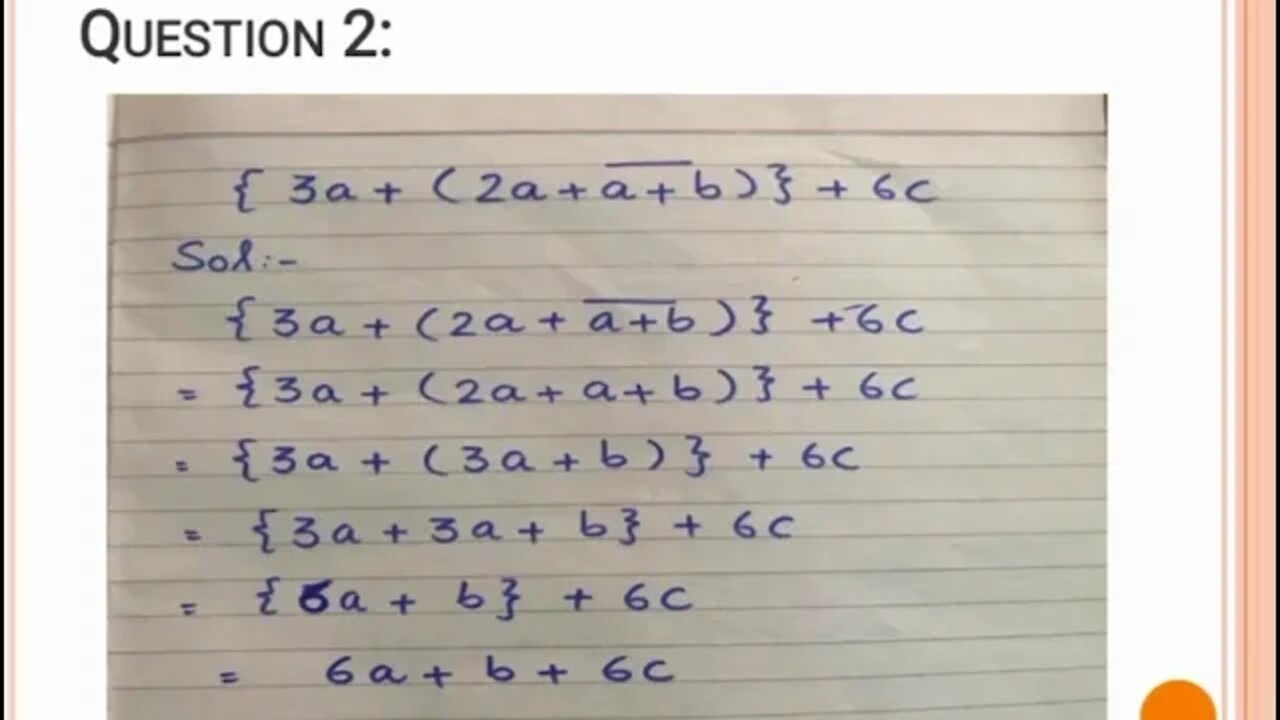 QUESTION 2:
{ 3a + ( 2a + a̅ ̅+̅ ̅b̅ ) } + 6c
Sol:-
{ 3a + ( 2a + a̅ ̅+̅ ̅b̅ ) } + 6c
= { 3a + ( 2a + a + b ) } + 6c
= { 3a + ( 3a + b ) } + 6c
= { 3a + 3a + b } + 6c
= { 6a + b } + 6c
= 6a + b + 6c